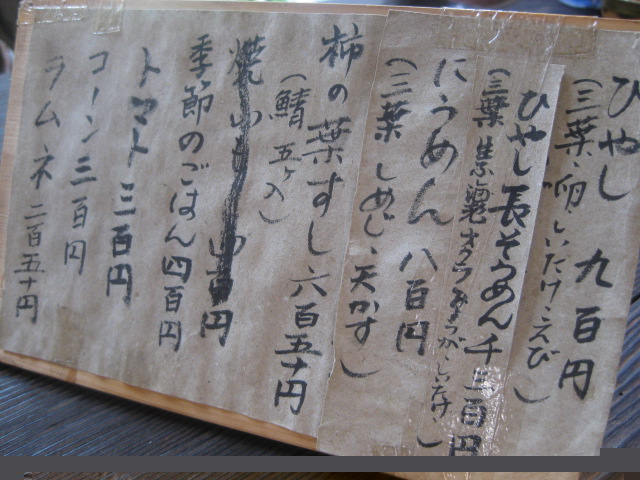 ひやし 九百円
(三葉、卵、しいたけ、えび)
ひやし長そうめん千三百円
(三葉 生海老 オクラ みょうが、しいたけ、)
にうめん 八百円
(三葉 しめじ、天かす)
柿の葉すし六百五十円
(鯖 五ヶ入)
円
季節のごはん四百円
トマト三百円
コーン三百円
ラムネ二百五十円